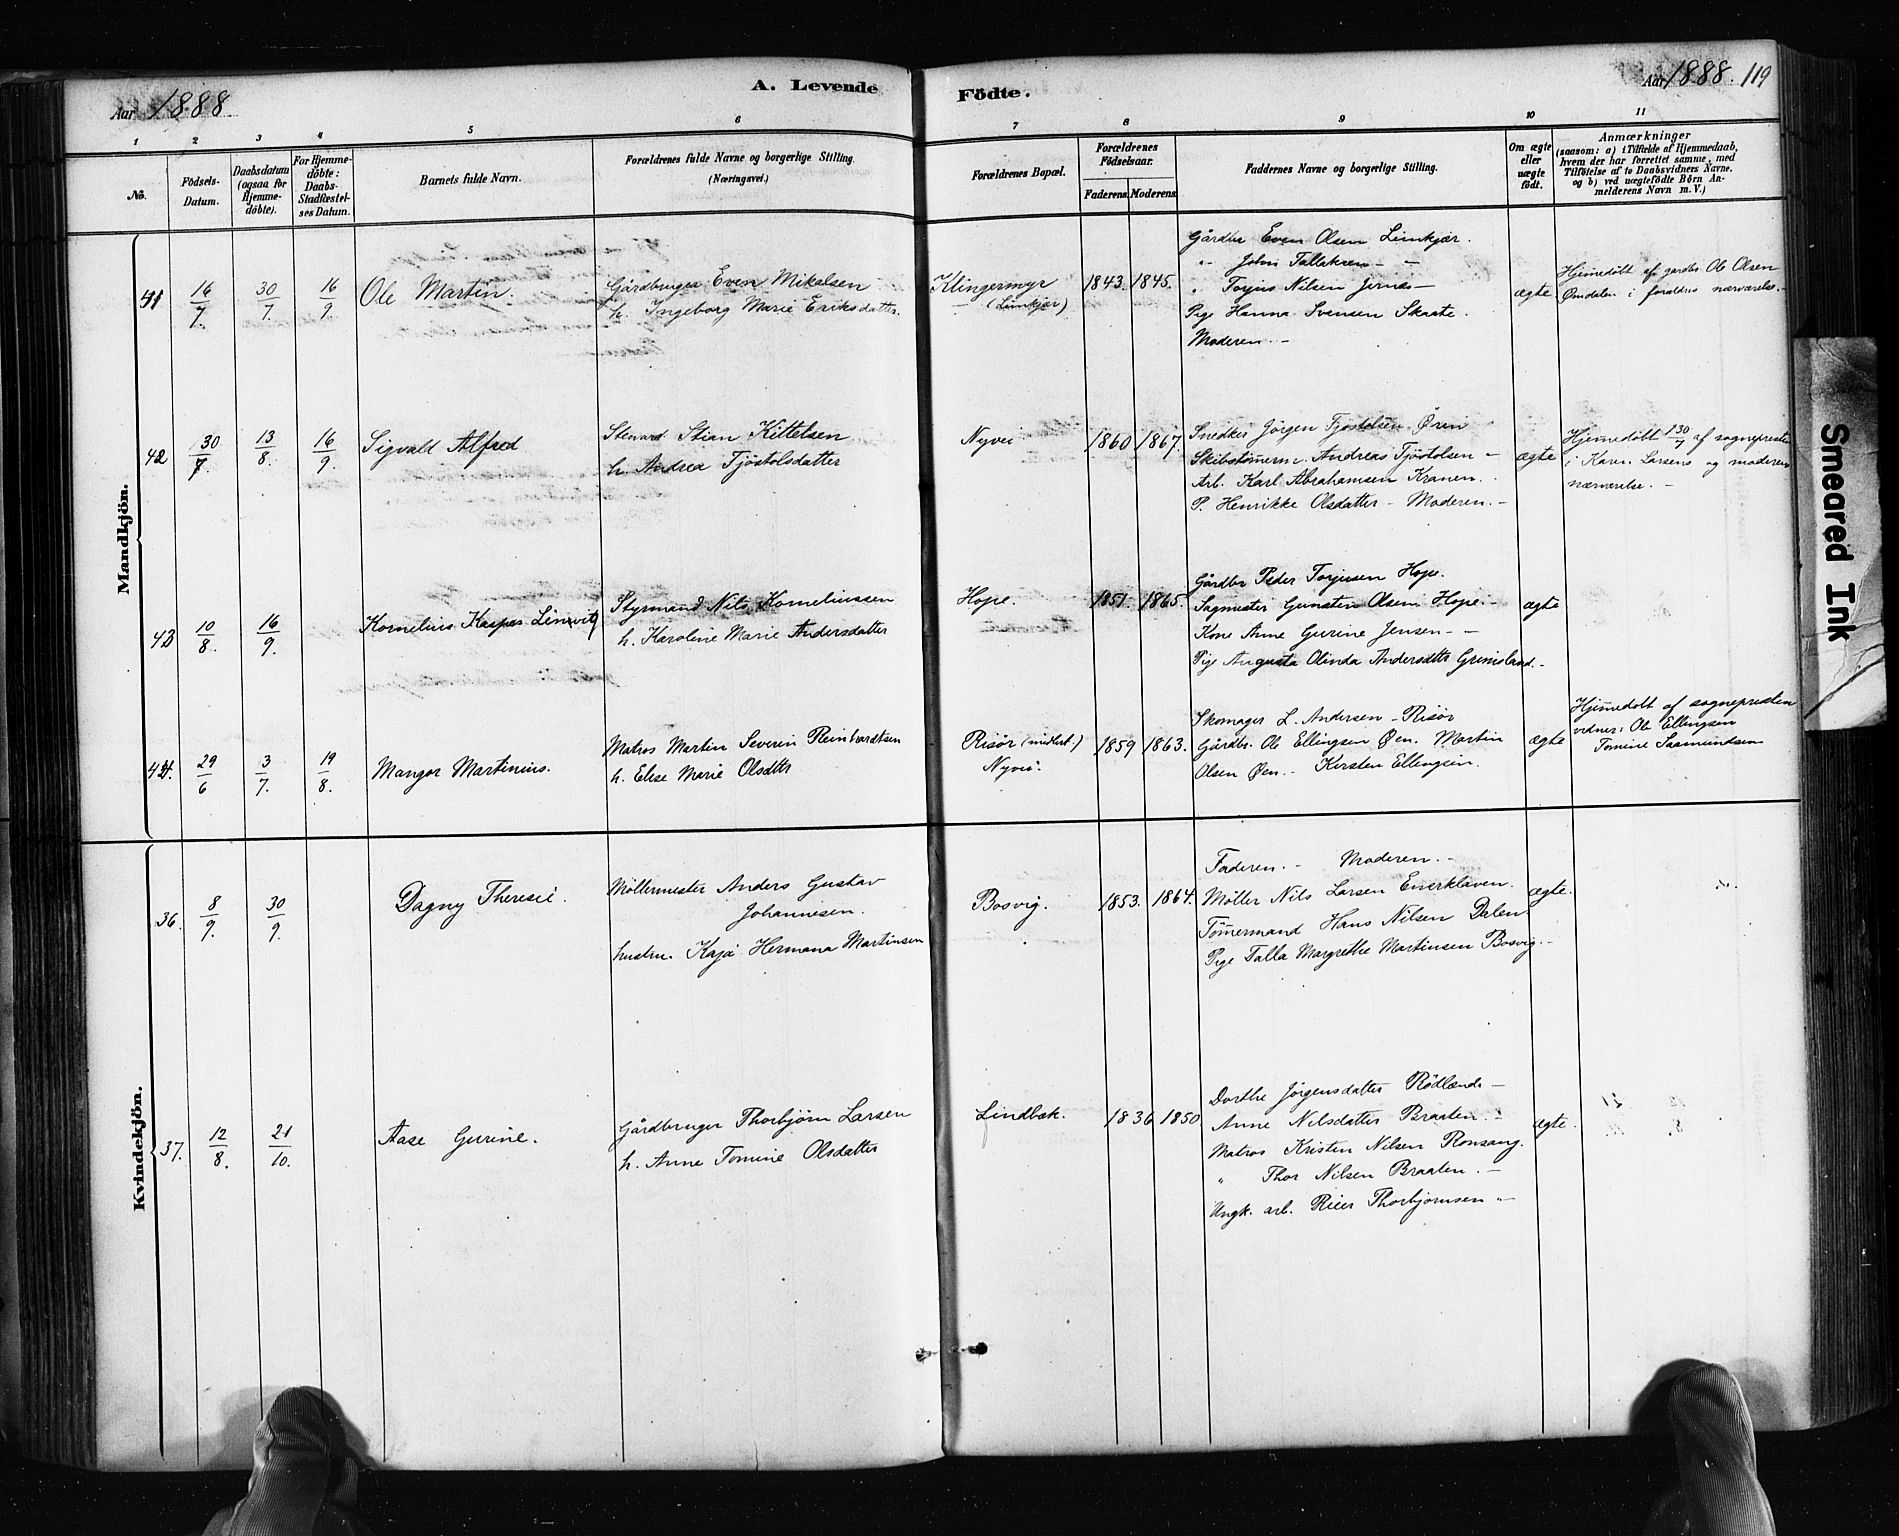 Aar 1888.
A. Levende
Födte.
Aar 1888. 119
1 2 3 4 5 6 7 8 9 10 11
No.
Födsels-
Datum.
Daabsdatum
(ogsaa for
Hjemme-
döbte).
For Hjemme-
döbte:
Daabs-
Stadfæstel-
ses Datum.
Barnets fulde Navn.
Forældrenes fulde Navne og borgerlige Stilling.
(Næringsvei.)
Forældrenes Bopæl.
Forældrenes
Födselsaar.
Faderens Moderens
Faddernes Navne og borgerlige Stilling.
Om ægte
eller
uægte
födt.
Anmærkninger
(saasom: a) i Tilfælde af Hjemmedaab,
hvem der har forrettet samme, med
Tilföielse af to Daabsvidners Navne.
og b) ved uægtefödte Börn An-
melderens Navn m. V.)
Mandkjön.
41
16/7.
30/7
16/9.
Ole Martin.
Gårdbruger Even Mikalsen
h. Ingeborg Marie Eriksdatter.
Klingermyr
(Limkjær)
1843. 1845.
Gårdbr Even Olsen Limkjær.
" John Tallaksen - -
" Torjus Nilsen Jernæs -
Pige Hanna Svensen Skaate.
Moderen. -
ægte
Hjemedöbt af gardb. Ole Olsen
Omdalen i forældres nærværelse. -
42
30/7.
13/8.
16/9.
Sigvald Alfred
Steward Stian Kittelsen
h. Andrea Tjöstolsdatter
Nyvei
1860 1867.
Snedker Jörgen Tjöstolsen Øren
Skibstömerm. Andreas Tjöstolsen -
Arb. Karl Abrahamsen Kranen.
P. Henrikke Olsdatter - Moderen. -
ægte
Hjemedöbt 30/7 af sognepresten
i Karen Larsens og moderens
nærværelse. -
43
10/8.
16/9.
Kornelius Kasper
Styrmand Nils Korneliussen
h. Karoline Marie Andersdatter
Hope.
1851. 1865.
Gårdbr Peder Torjusen Hope.
Sagmester Gunsten Olsen Hope. -
Kone Anne Gurine Jensen - -
Pige Augusta Olinda Andersdtter Grimsland. -
ægte
44.
29/6
3/7.
19/8.
Mangor Martinius.
Matros Martin Severin Reinhardtsen
h. Elise Marie Olsdtter
Risör (midlert.)
Nyvei.
1859 1863.
Skomager L. Andersen - Risör
Gårdbr. Ole Ellingsen Øen. Martin
Olsen Øen. - Kirsten Ellingsen.
ægte
Hjemedöbt af sognepresten
vidner: Ole Ellingsen
Tomine Saamundsen
Kvindekjön.
36.
8/9.
30/9.
Dagny Theresie.
Möllermester Anders Gustav
Johannesen.
hustru. Kaja Hermana Martinsen
Bosvig.
1853. 1864.
Faderen. - Moderen. -
Möller Nils Larsen Enerklaven.
Tömermand Hans Nilsen Dalen.
Pige Talla Margrethe Martinsen Bosvig. -
ægte.
37.
12/8.
21/10.
Aase Gurine.
Gårdbruger Thorbjörn Larsen
h. Anne Tomine Olsdatter
Lindbæk.
1836 1850
Dorthe Jörgensdatter Rödlænde -
Anne Nilsdatter Braaten. -
Matros Kristen Nilsen Ronsang.
" Thor Nilsen Braaten. -
Ungk. arb. Reier Thorbjörnsen "-
ægte.
Smeared Ink